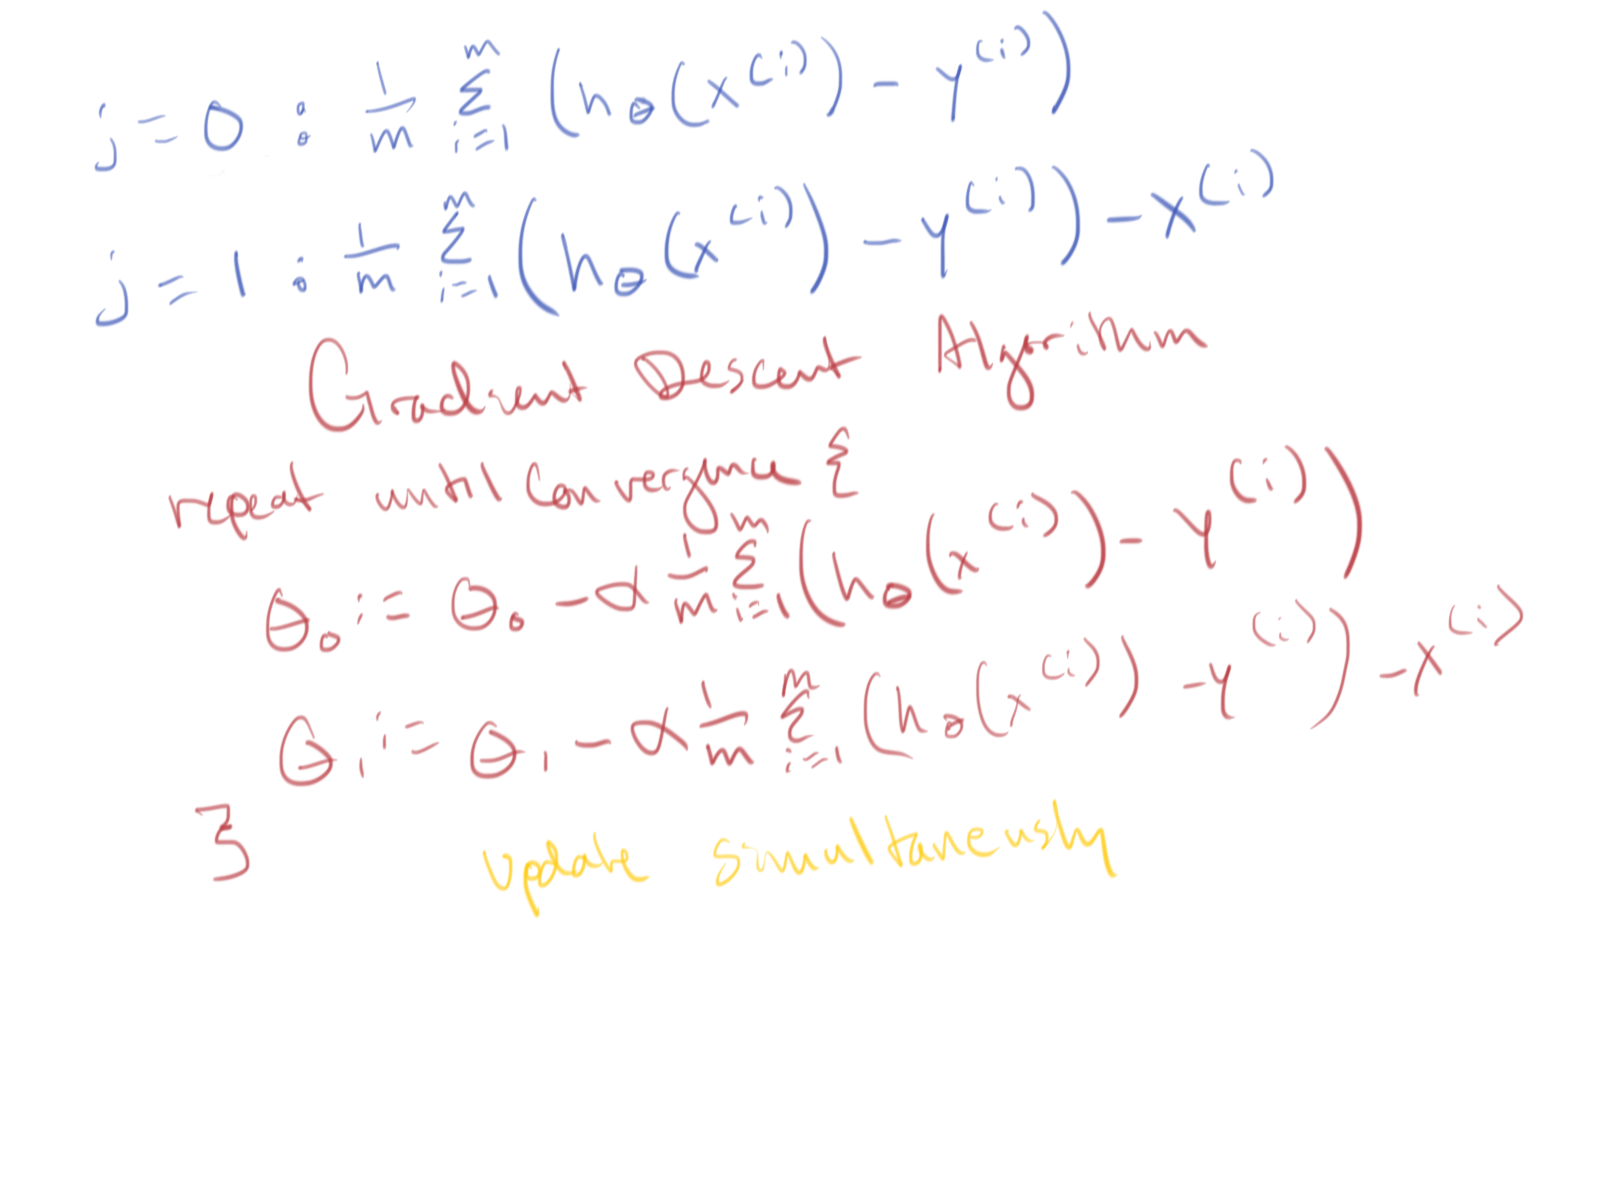 j = 0 : 1/m Σ_{i=1}^{m} (h_θ(x^{(i)}) - y^{(i)})
j = 1 : 1/m Σ_{i=1}^{m} (h_θ(x^{(i)}) - y^{(i)}) - x^{(i)}
Gradient Descent Algorithm
repeat until Convergence {
θ_0 := θ_0 - α 1/m Σ_{i=1}^{m} (h_θ(x^{(i)}) - y^{(i)})
θ_1 := θ_1 - α 1/m Σ_{i=1}^{m} (h_θ(x^{(i)}) - y^{(i)}) - x^{(i)}
}
update simultaneusly